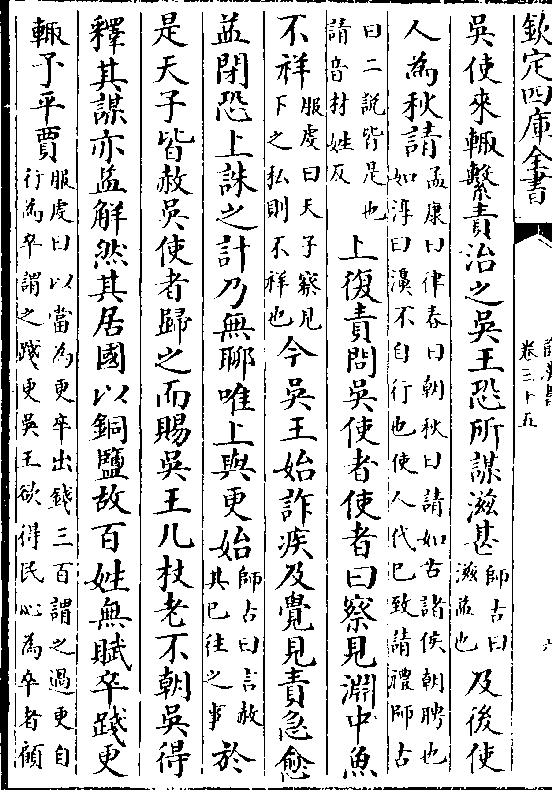 欽定四庫全書
卷三十五
吳使來輒繫責治之吳王恐所謀滋甚師古曰滋益也及後使
人為秋請孟康曰律春曰朝秋曰請如古諸侯朝聘也如淳曰濞不自行也使人代已致請禮師古
曰二說皆是也請音材姓反上復責問吳使者使者曰察見淵中魚
不祥服虔曰天子察見下之私則不祥也今吳王始詐疾及覺見責急愈
益閉恐上誅之計乃無聊唯上與更始師古曰言赦其已往之事於
是天子皆赦吳使者歸之而賜吳王几杖老不朝吳得
釋其謀亦益解然其居國以銅鹽故百姓無賦卒踐更
輒予平賈服虔曰以當為更卒出錢三百謂之過更自行為卒謂之踐更吳王欲得民心為卒者顧